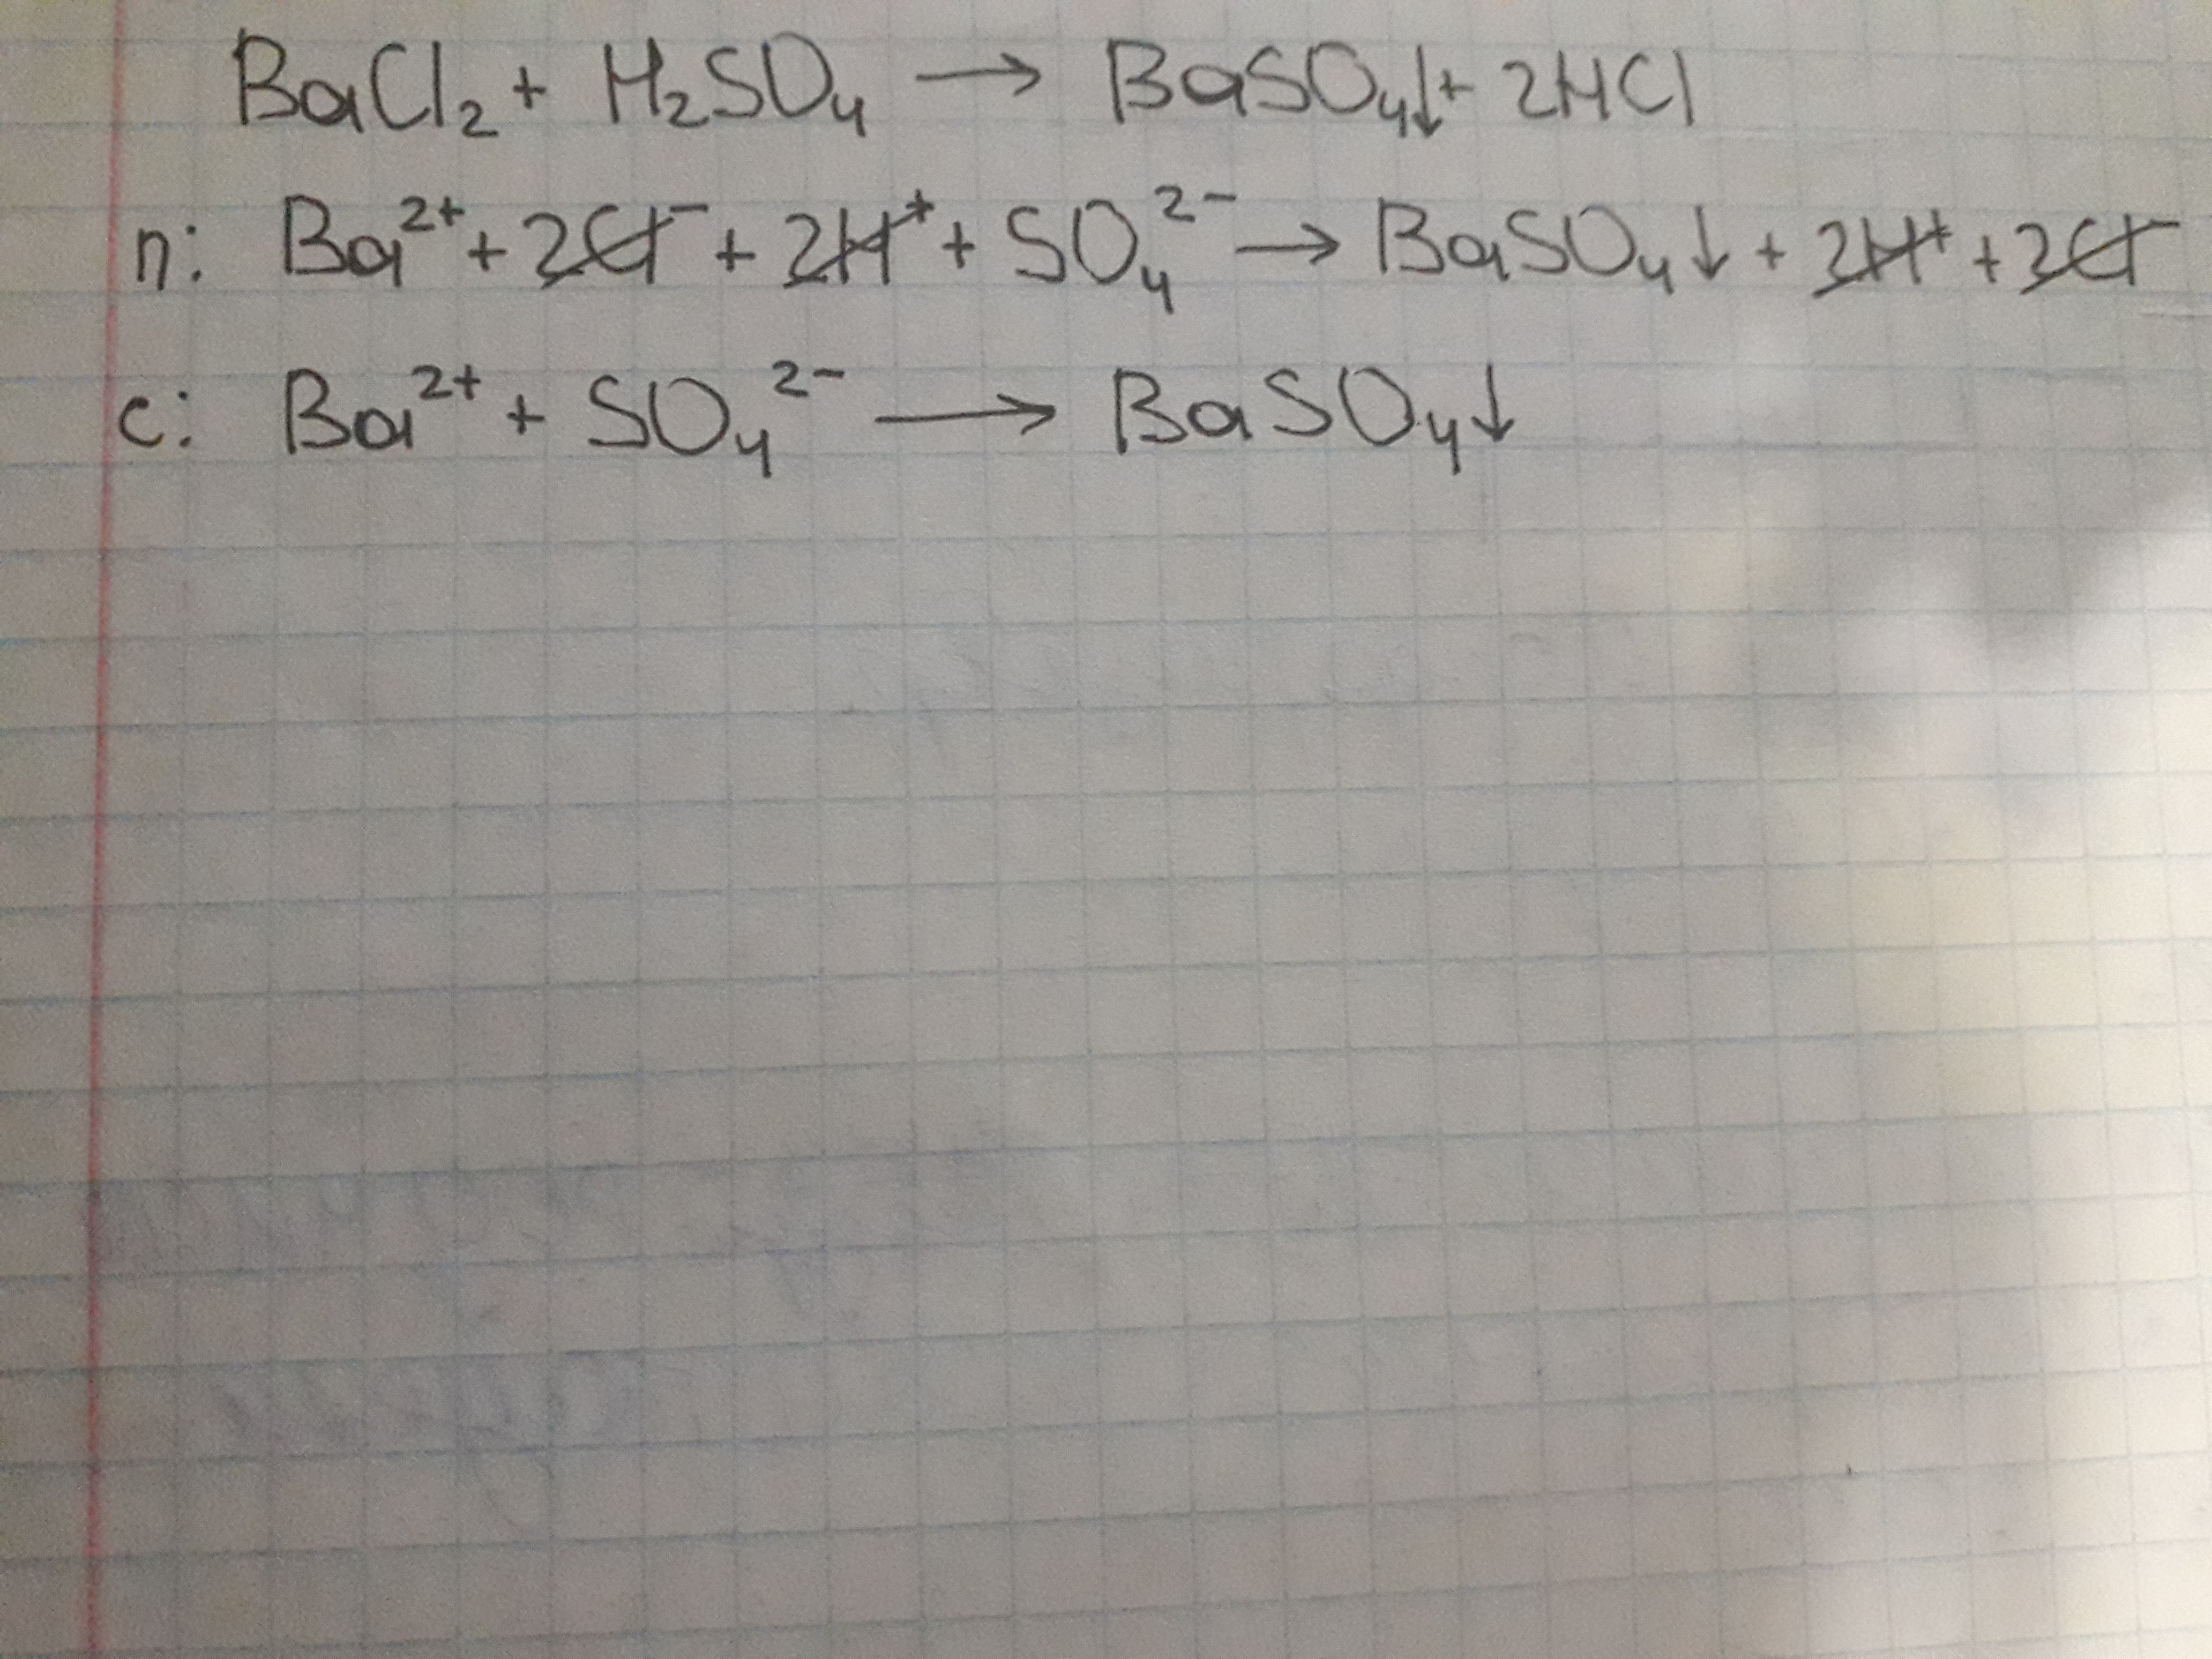 BaCl₂ + H₂SO₄ → BaSO₄↓ + 2HCl
п: Ba²⁺ + 2Cl⁻ + 2H⁺ + SO₄²⁻ → BaSO₄↓ + 2H⁺ + 2Cl⁻
с: Ba²⁺ + SO₄²⁻ → BaSO₄↓